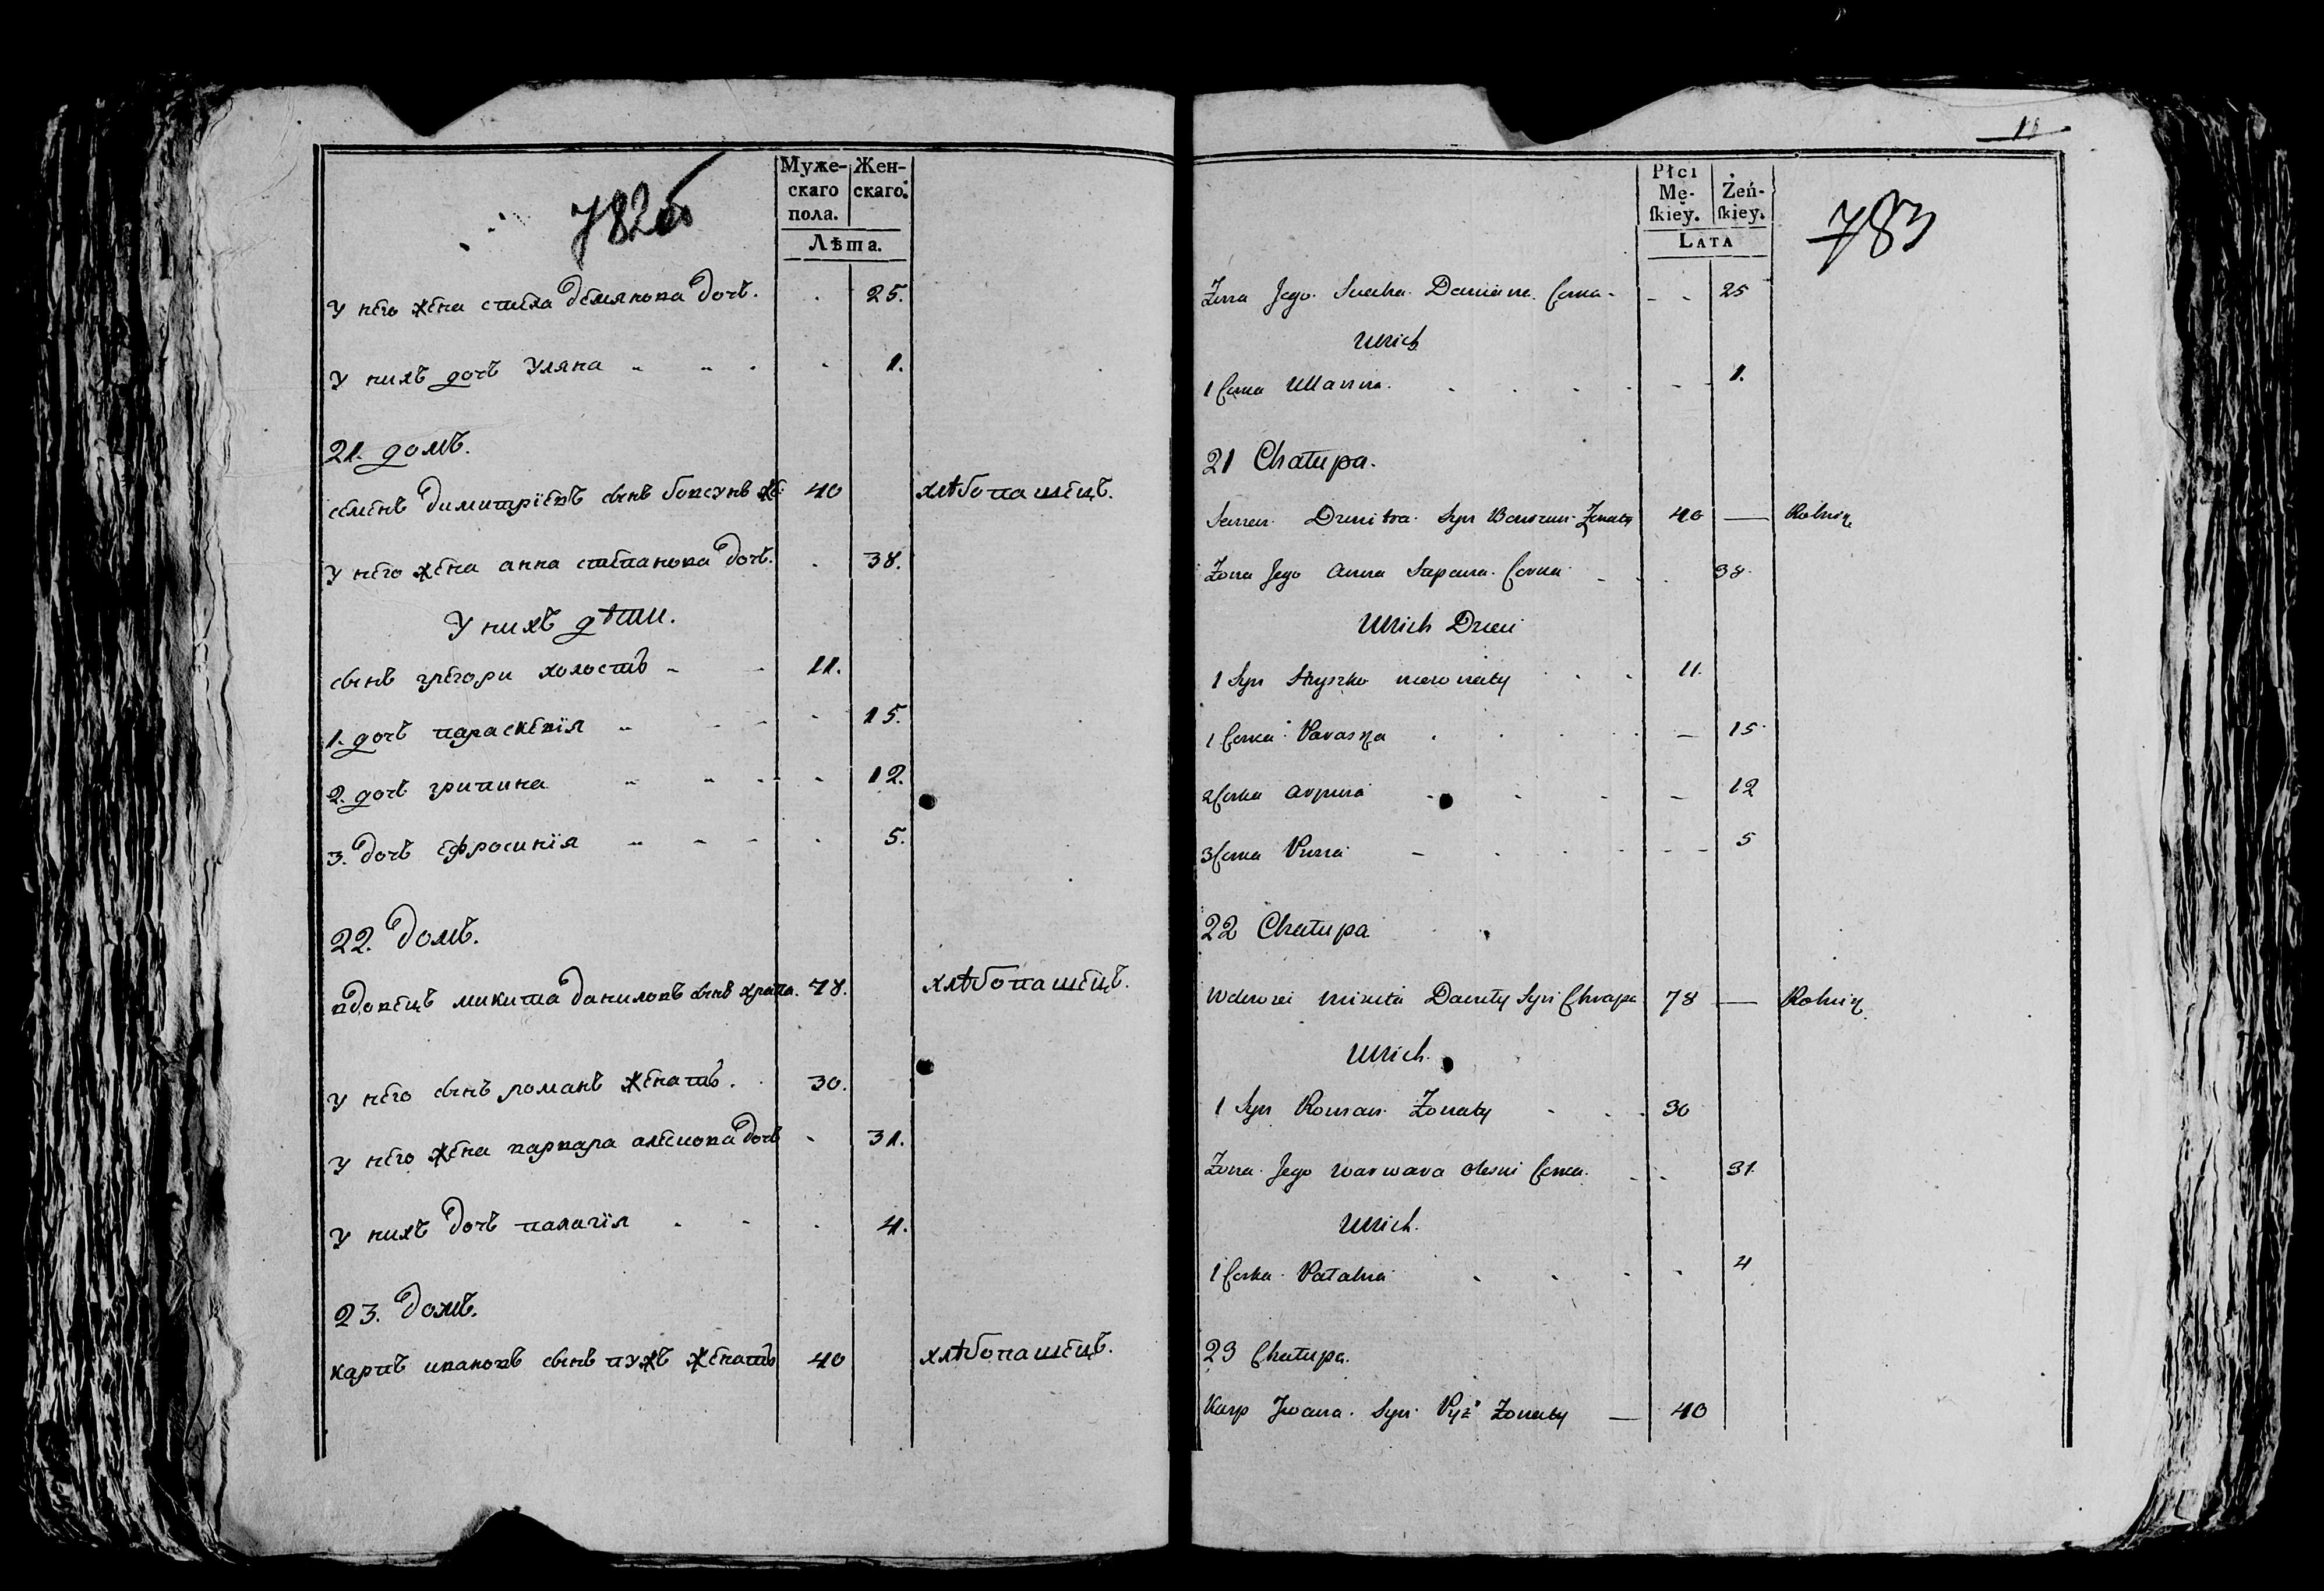 782б
Муже-
скаго
пола.
Жен-
скаго.
Лѣта.
У него жена стеха демянова дочь. 25.
У нихъ дочь Уляна 1.
21. домъ.
семенъ димитріевъ сынъ бовсунъ же: 40 хлѣбопашецъ.
У него жена анна степанова дочь. 38.
У нихъ дѣти.
сынъ григори холостъ 11.
1. дочь параскевія 15.
2. дочь грипина 12.
3. дочь ефросинія 5.
22. домъ.
вдовецъ микита даниловъ сынъ храпа. 78. хлѣбопашецъ.
У него сынъ романъ женатъ. 30.
У него жена варвара алесиова дочь 31.
У нихъ дочь палагія 4.
23. домъ.
карпъ ивановъ сынъ пужъ женатъ 40 хлѣбопашецъ.
11
Płci
Mę-
ſkiey.
Żeń-
ſkiey.
LATA
783
Zona Jego Stecha Damiana Corka 25
U Nich
1 Corka Ullanna. 1.
21 Chałupa.
Semen Dmitra Syn Bowsun Zonaty 40 — Rolnik
Zona Jego Anna Stepana Corka 38.
U Nich Dzieci
1 Syn Hryszko niezonaty 11.
1 Corka Paraszka 15
2 Corka Arpina 12
3 Corka Prina 5
22 Chałupa
Wdowei Mikita Daniły Syn Chrapa 78 — Rolnik
U Nich.
1 Syn Roman Zonaty 30
Zona Jego Warwara Olesni Corka. 31
U Nich.
1 Corka Patalna 4
23 Chałupa.
Karp Jwana Syn Pyż Zonaty — 40